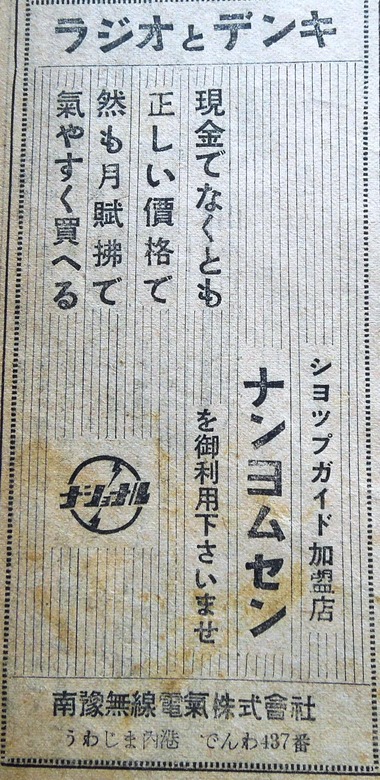 ラジオとデンキ
ショップガイド加盟店
ナンヨムセン
を御利用下さいませ
現金でなくとも
正しい價格で
然も月賦拂で
氣やすく買へる
ナショナル
南豫無線電氣株式會社
うわじま内港 でんわ437番